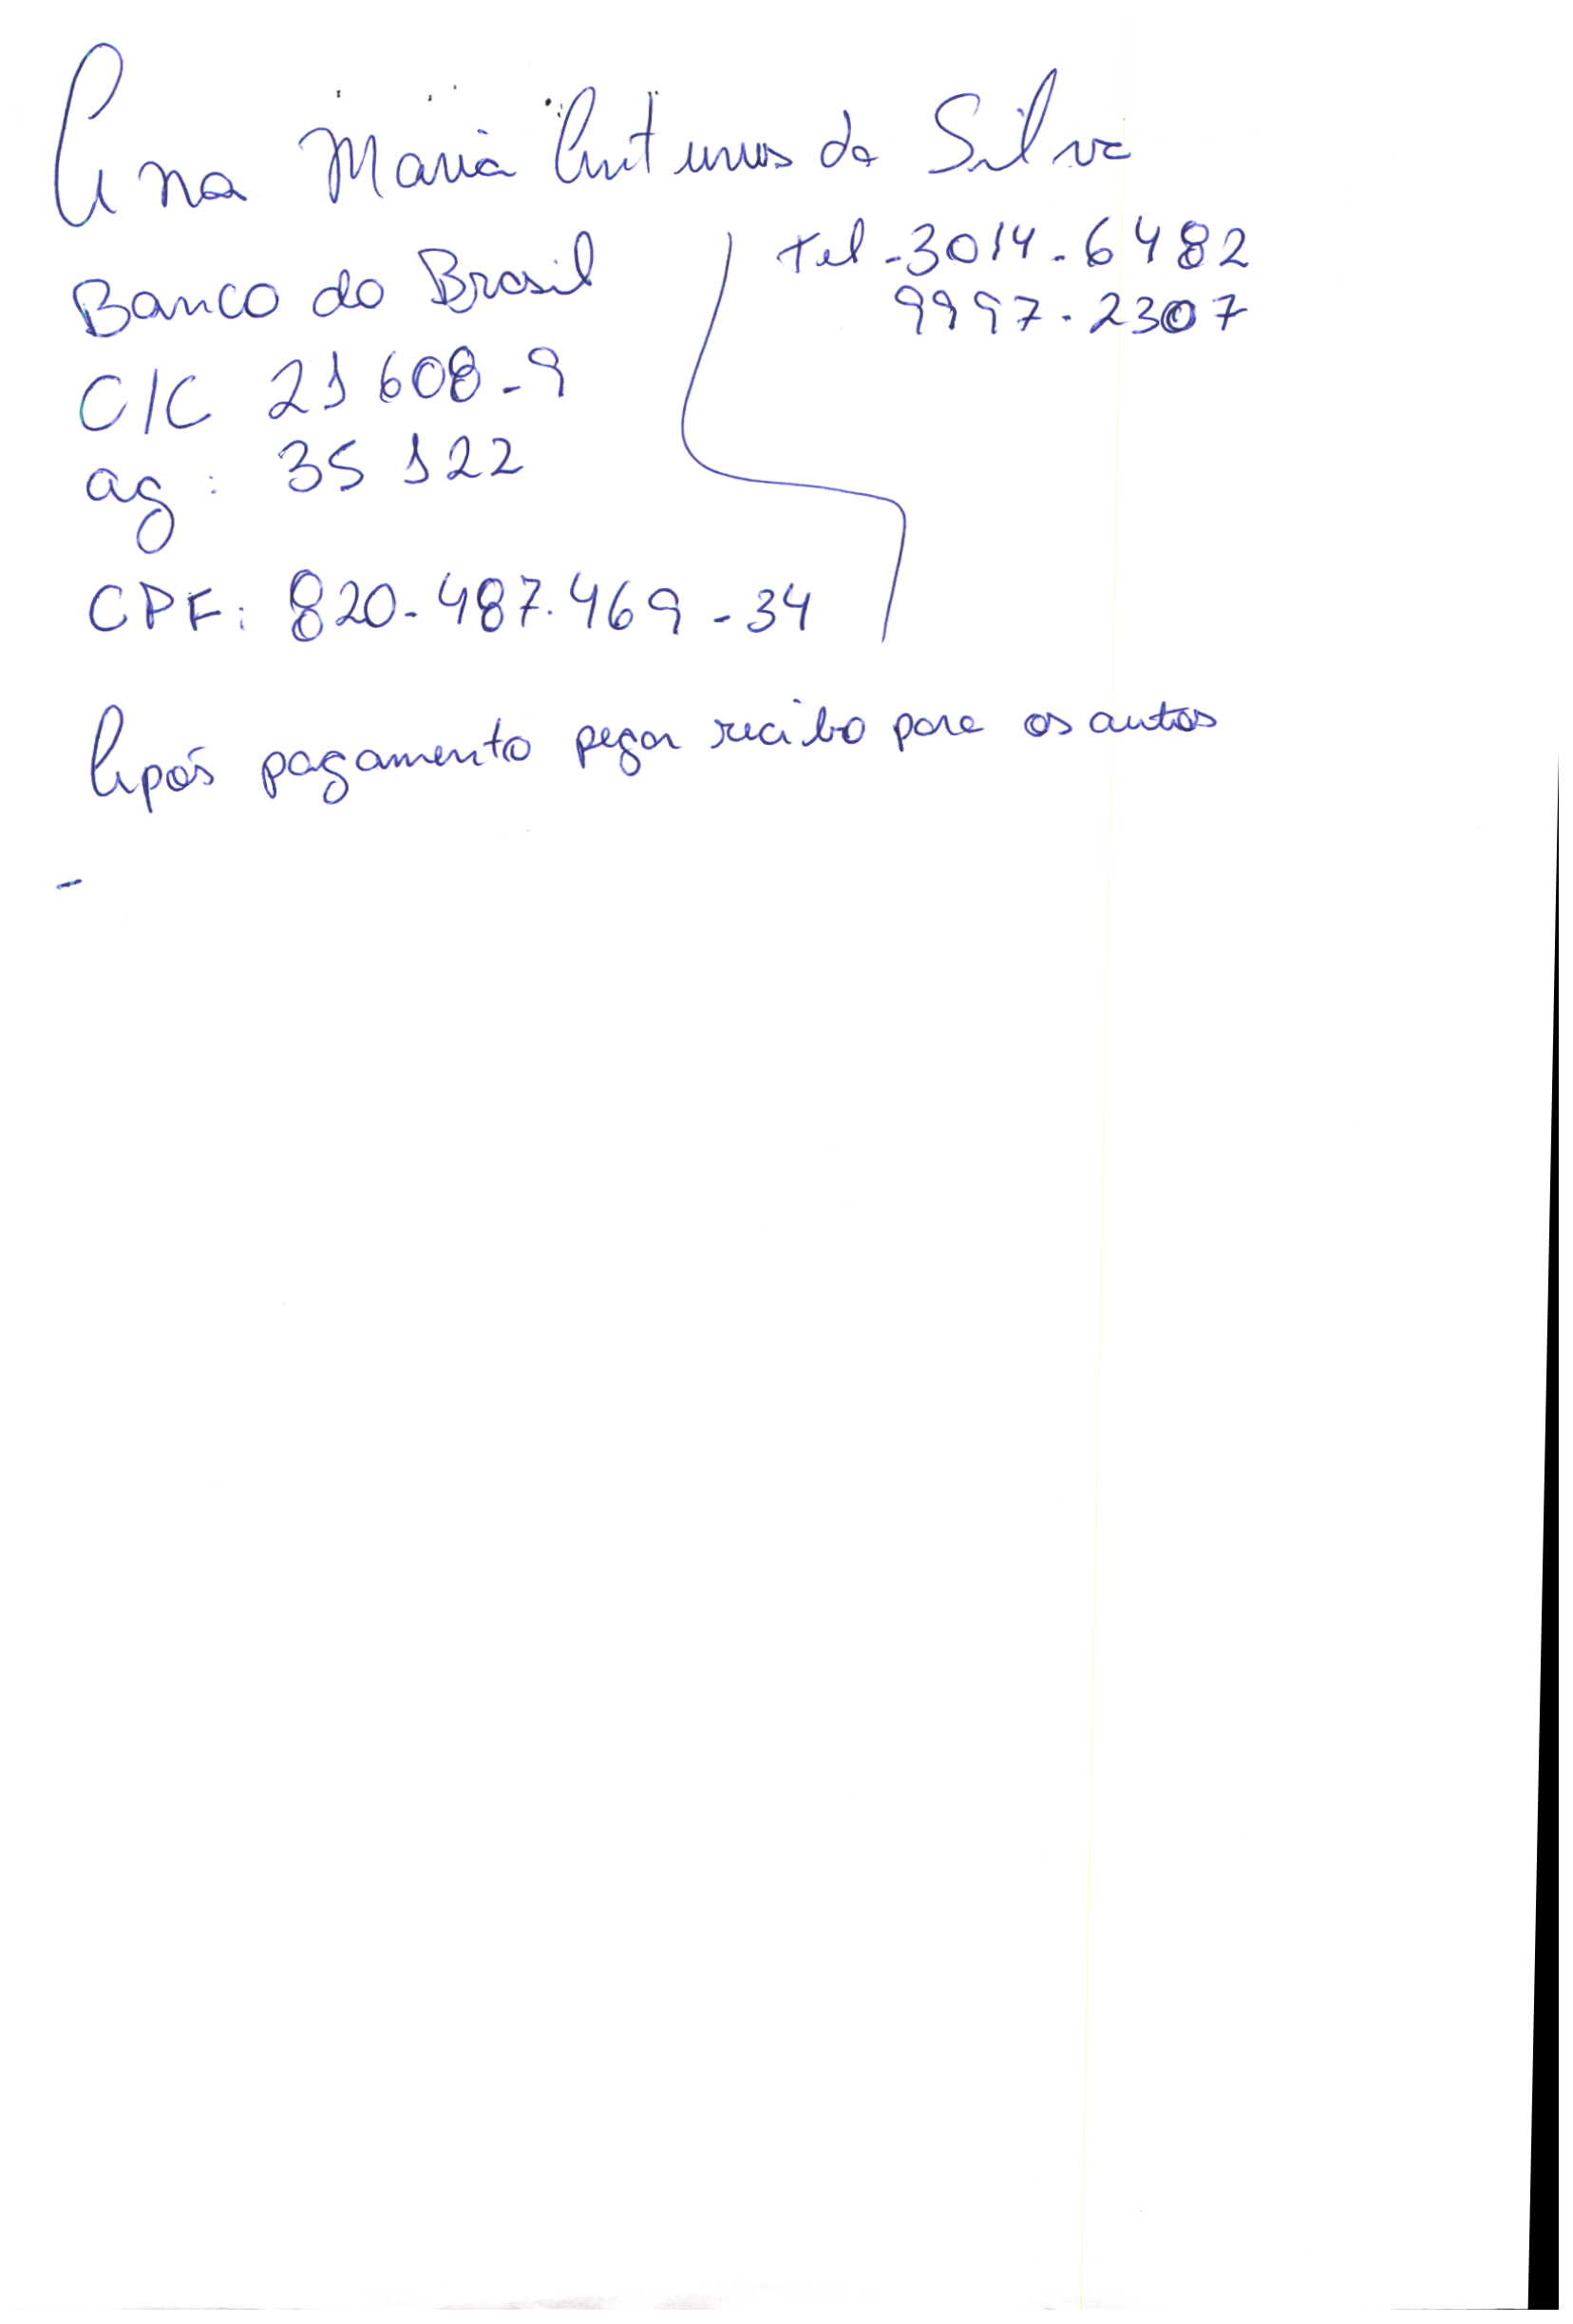 Ana Maria Antunes da Silva
Tel - 3014-6482
9997-2307
Banco do Brasil
C/C 21608-9
ag: 35122
CPF: 820.487.469-34
Após pagamento pegar recibo para os autos
-